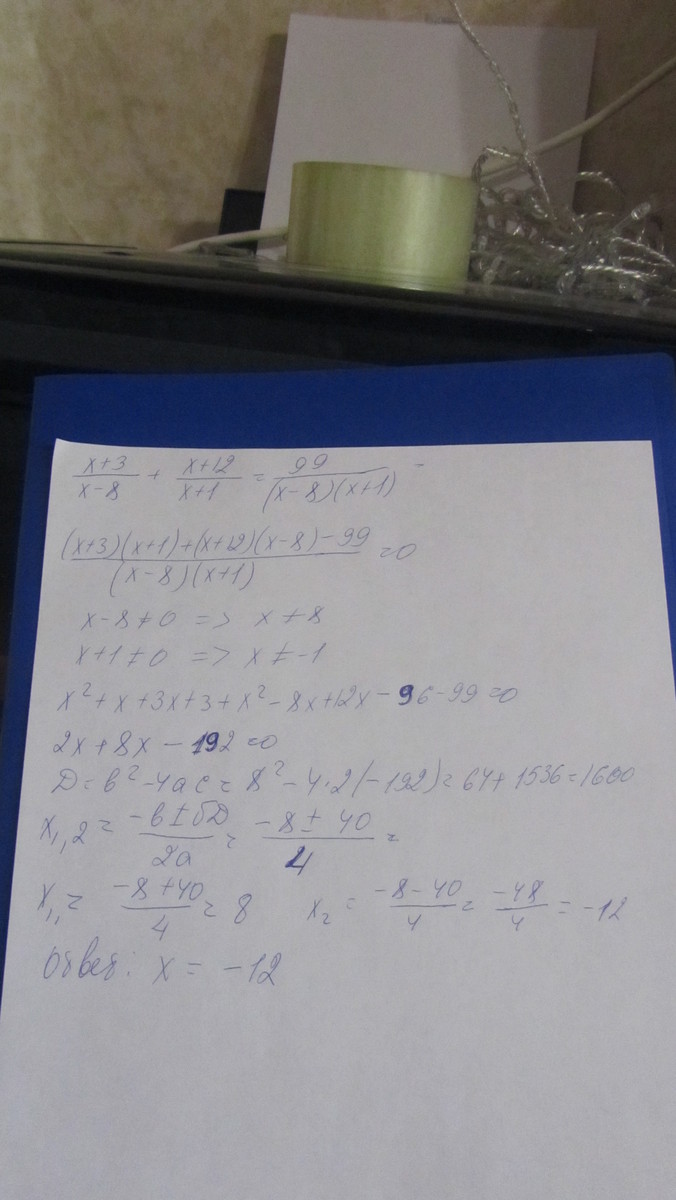 (x+3)/(x-8) + (x+12)/(x+1) = 99/((x-8)(x+1))
((x+3)(x+1)+(x+12)(x-8)-99)/((x-8)(x+1)) =0
x-8≠0 => x≠8
x+1≠0 => x≠-1
x²+x+3x+3+x²-8x+12x-96-99=0
2x+8x-192=0
D=b²-4ac=8²-4·2(-192)=64+1536=1600
x₁,₂ = (-b±√D)/2a = (-8±40)/4 =
x₁,= (-8+40)/4 = 8 x₂ = (-8-40)/4 = -48/4 = -12
Ответ: x = -12